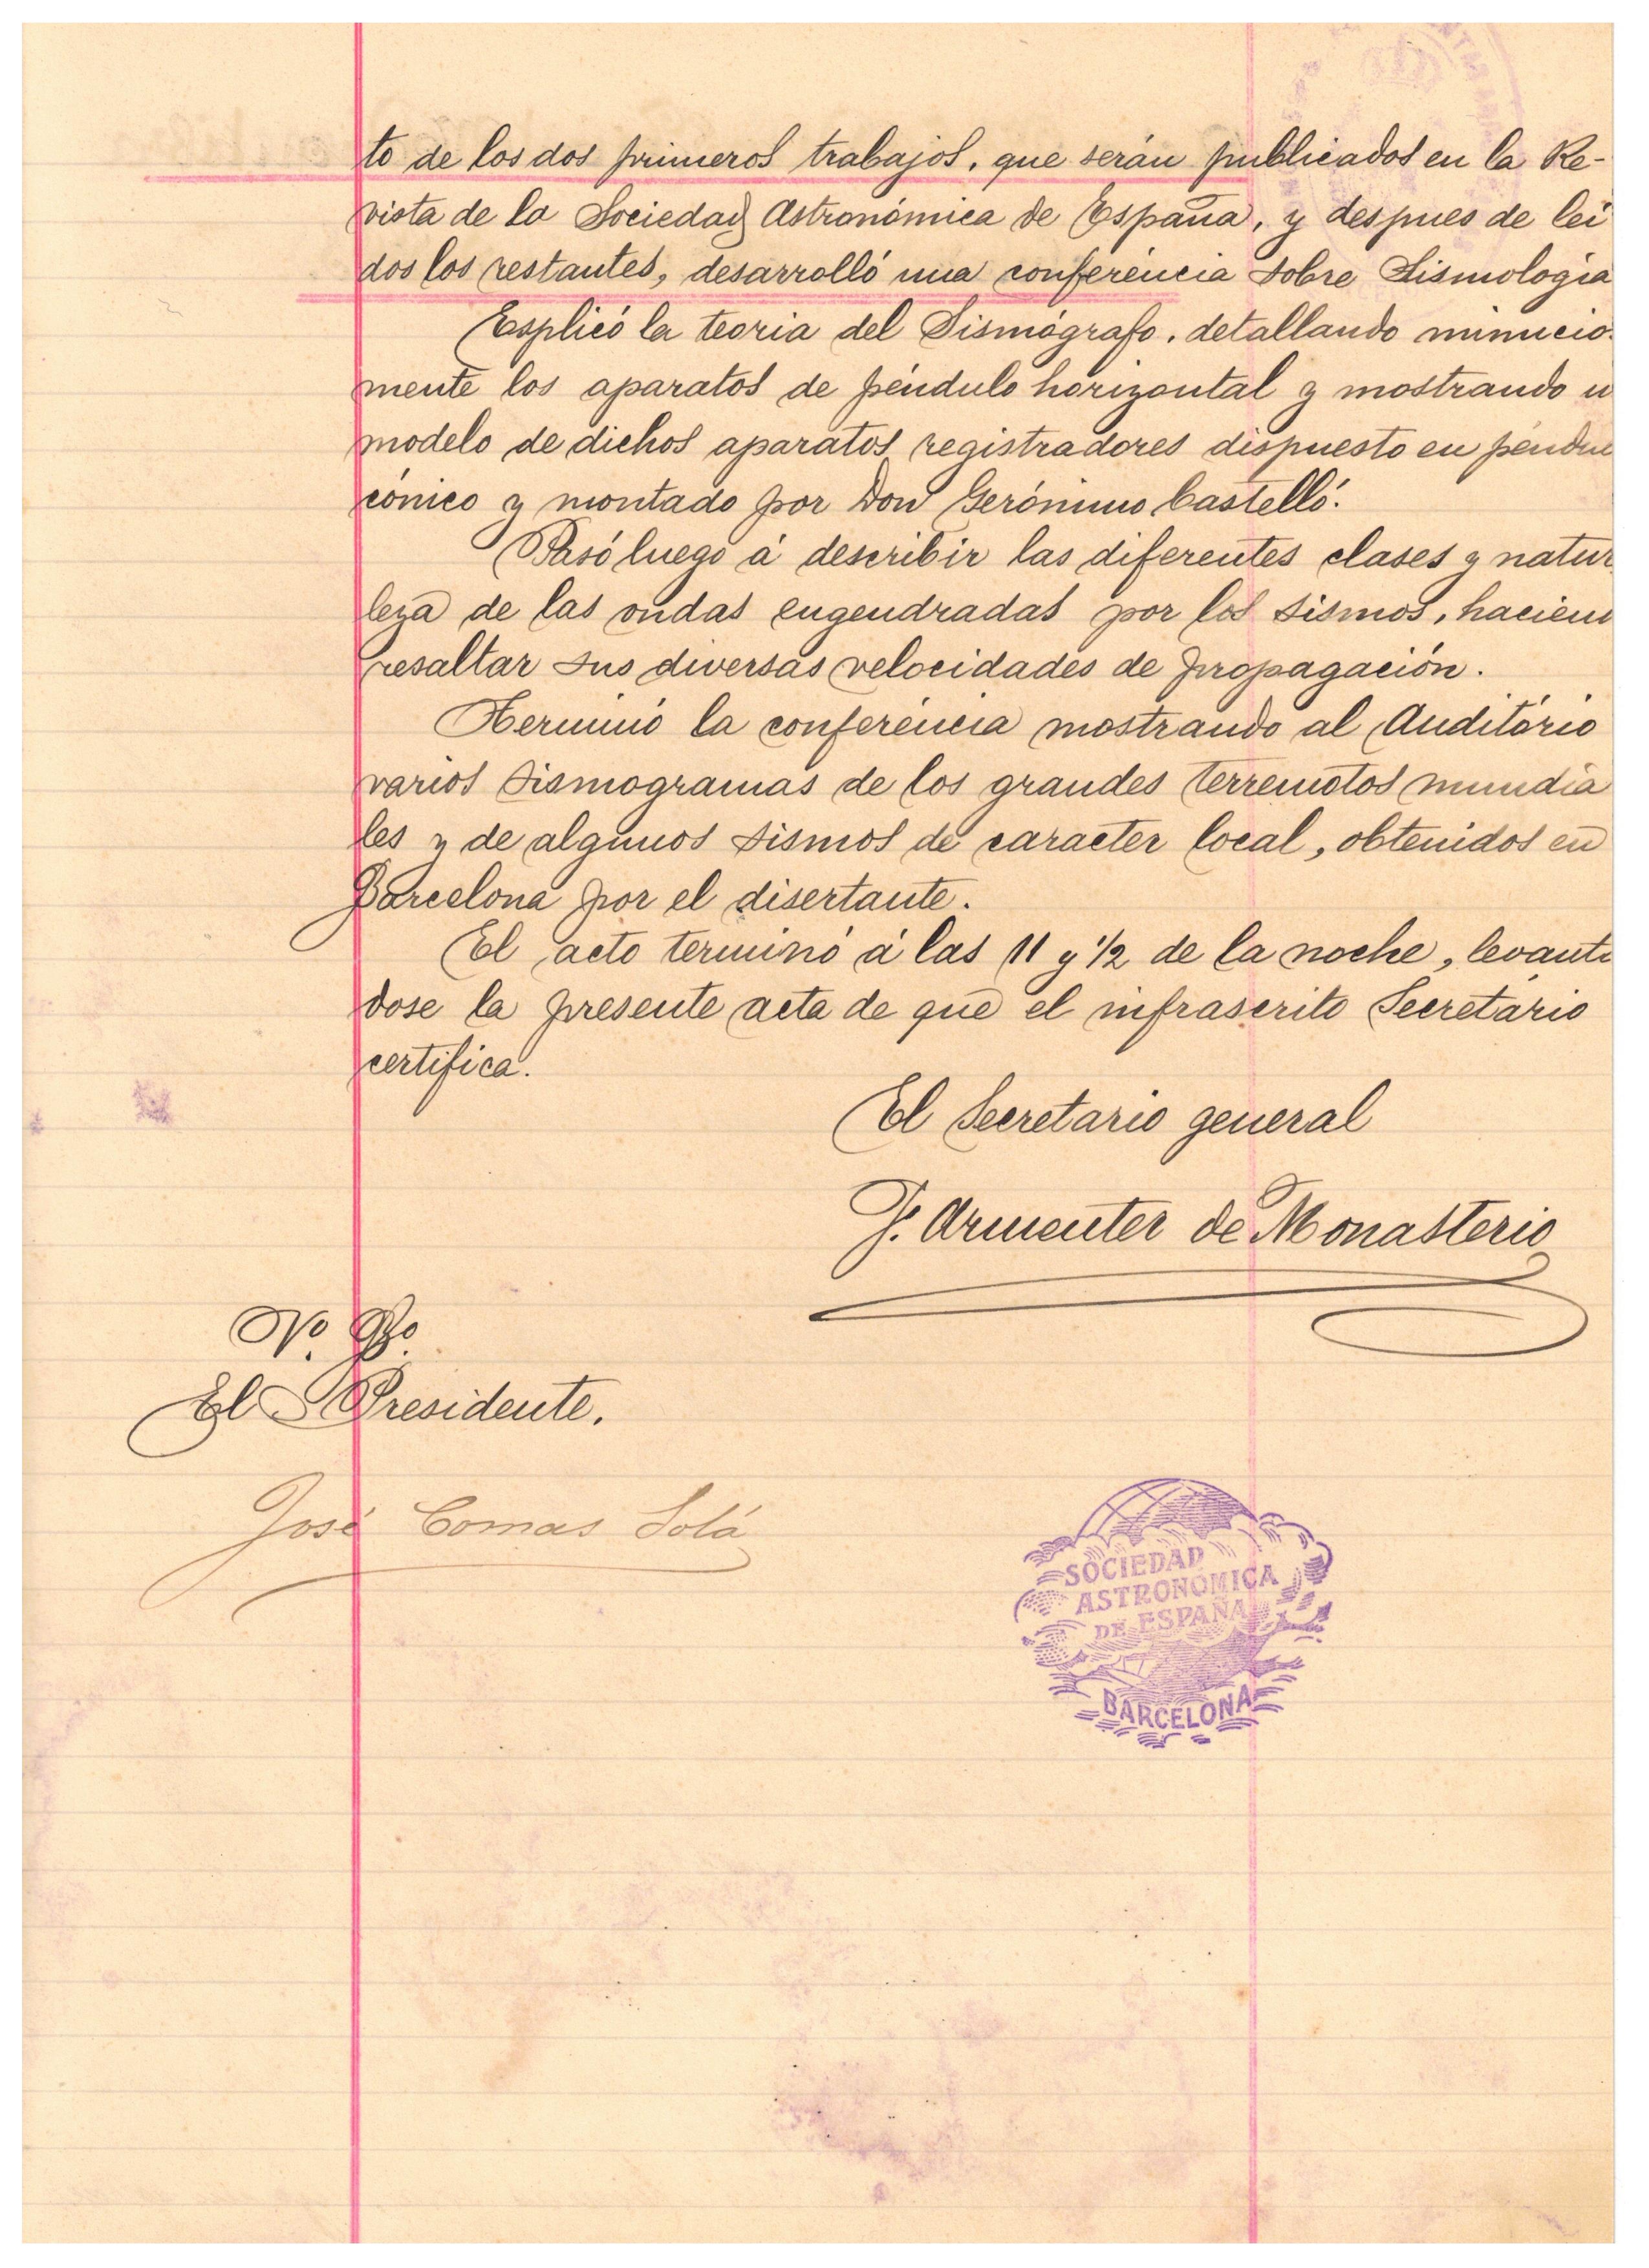 to de los dos primeros trabajos, que serán publicados en la Re-
vista de la Sociedad Astronómica de España, y despues de lei
dos los restantes, desarrolló una conferéncia sobre Sismología
Esplicó la teoria del Sismógrafo, detallando minucio-
mente los aparatos de péndulo horizontal y mostrando u
modelo de dichos aparatos registradores dispuesto en péndu
cónico y montado por Don Gerónimo Castelló.
Pasó luego á describir las diferentes clases y natur
leza de las ondas engendradas por los sismos, hacien
resaltar sus diversas velocidades de propagación.
Terminó la conferéncia mostrando al Auditório
varios sismogramas de los grandes terremotos mundia
les y de algunos sismos de caracter local, obtenidos en
Barcelona por el disertante.
El acto terminó á las 11 y 1/2 de la noche, levant
dose la presente acta de que el infrascrito Secretario
certifica.
El Secretario general
F. Armenter de Monasterio
Vº Bº
El Presidente.
José Comas Solá
SOCIEDAD
ASTRONÓMICA
DE ESPAÑA
BARCELONA